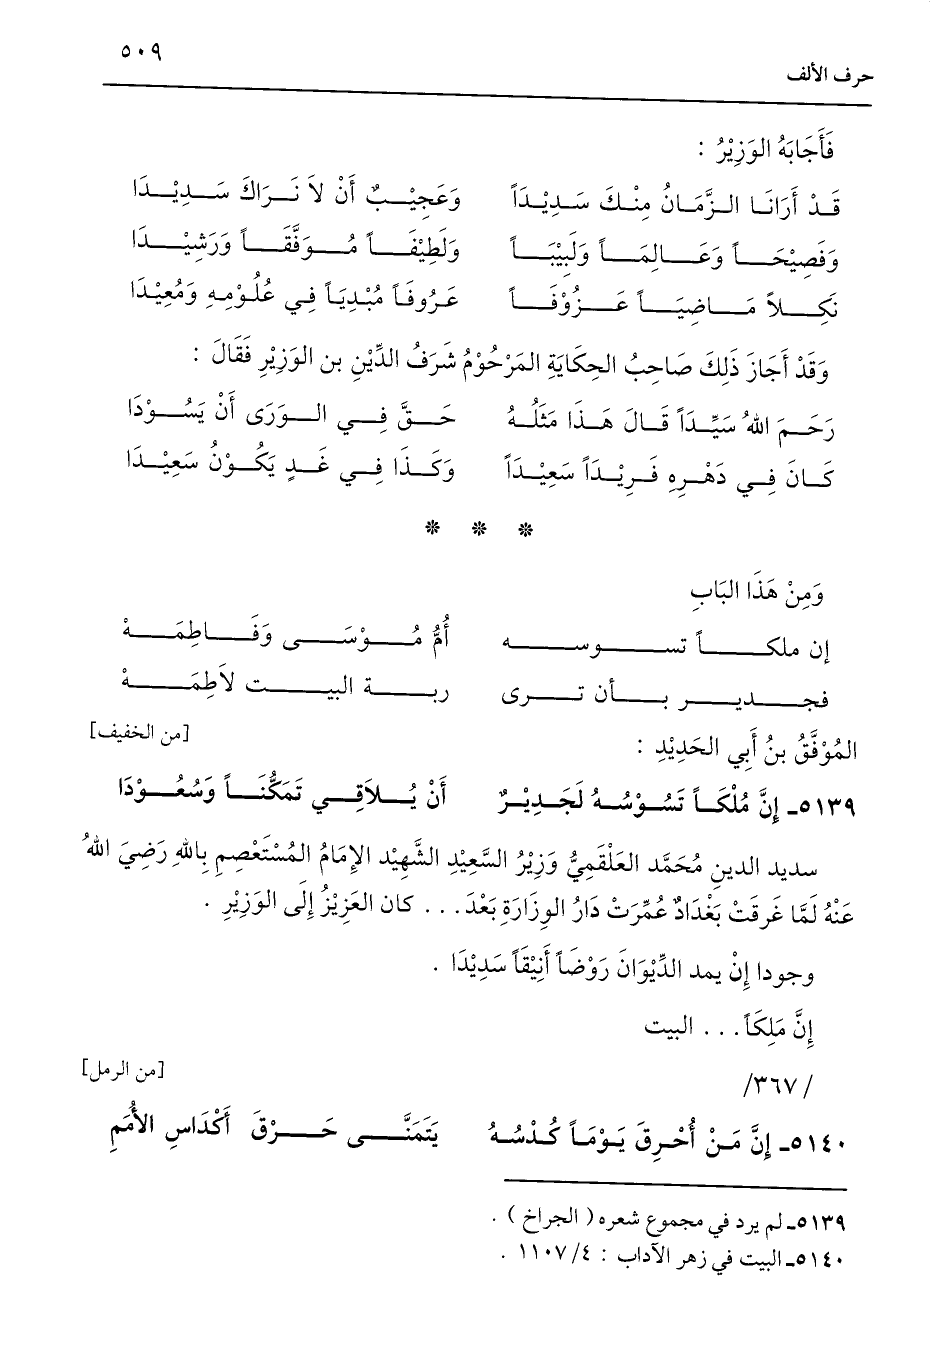 حرف الألف ٥٠٩
فَأَجَابَهُ الوَزِيْرُ :
قَدْ أَرَانَا الزَّمَانُ مِنْكَ سَدِيْدَاً وَعَجِيْبٌ أَنْ لاَ نَرَاكَ سَدِيْدَا
وَفَصِيْحَاً وَعَالِمَاً وَلَبِيْبَاً وَلَطِيْفَاً مُوَفَّقَاً وَرَشِيْدَا
نَكِلاً مَاضِيَاً عَزُوْفَاً عَرُوفَاً مُبْدِيَاً فِي عُلُوْمِهِ وَمُعِيْدَا
وَقَدْ أَجَازَ ذَلِكَ صَاحِبُ الحِكَايَةِ المَرْحُوْمُ شَرَفُ الدِّيْنِ بن الوَزِيْرِ فَقَالَ :
رَحَمَ اللهُ سَيِّدَاً قَالَ هَذَا مَثَلُهُ حَقَّ فِي الوَرَى أَنْ يَسُوْدَا
كَانَ فِي دَهْرِهِ فَرِيْدَاً سَعِيْدَاً وَكَذَا فِي غَدٍ يَكُوْنُ سَعِيْدَا
* * *
وَمِنْ هَذَا البَابِ
إن ملكاً تسوسه أُمُّ مُوْسَى وَفَاطِمَهْ
فجدير بأن ترى ربة البيت لاَطِمَهْ
المُوْفَّقُ بنُ أَبِي الحَدِيْدِ : [من الخفيف]
٥١٣٩ـ إِنَّ مُلْكَاً تَسُوْسُهُ لَجَدِيْرٌ أَنْ يُلاَقِي تَمَكُّنَاً وَسُعُوْدَا
سديد الدين مُحَمَّد العَلْقَمِيُّ وَزِيْرُ السَّعِيْدِ الشَّهِيْد الإِمَامُ المُسْتَعْصِمِ بِاللهِ رَضِيَ اللهُ
عَنْهُ لَمَّا غَرِقَتْ بَغْدَادٌ عُمِّرَتْ دَارُ الوِزَارَةِ بَعْدَ... كان العَزِيْزُ إِلَى الوَزِيْرِ .
وجودا إِنْ يمد الدِّيْوَانَ رَوْضَاً أَنِيْقَاً سَدِيْدَا .
إِنَّ مَلِكَاً... البيت
/٣٦٧/ [من الرمل]
٥١٤٠ـ إِنَّ مَنْ أُحْرِقَ يَوْمَاً كُدْسُهُ يَتَمَنَّى حَرْقَ أَكْدَاسِ الأُمَمِ
٥١٣٩ـ لم يرد في مجموع شعره ( الجراخ ) .
٥١٤٠ـ البيت في زهر الآداب : ٤/ ١١٠٧ .